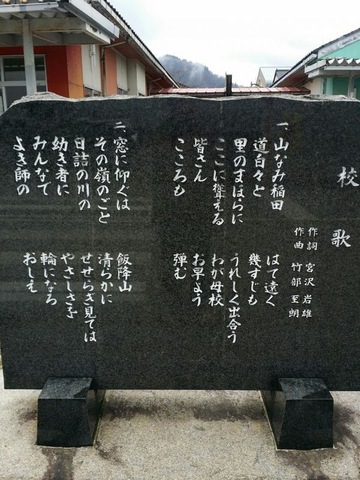 校歌
作詞 宮沢岩雄
作曲 竹部至朗
一、山なみ稲田 はて遠く
道白々と 幾すじも
里のまほらに うれしく出合う
ここに聳える わが母校
皆さん お早よう
こころも 弾む
二、窓に仰ぐは 飯降山
その嶺のごと 清らかに
日詰の川の せせらぎ見ては
幼き者に やさしさを
みんなで 輪になろ
よき師の おしえ